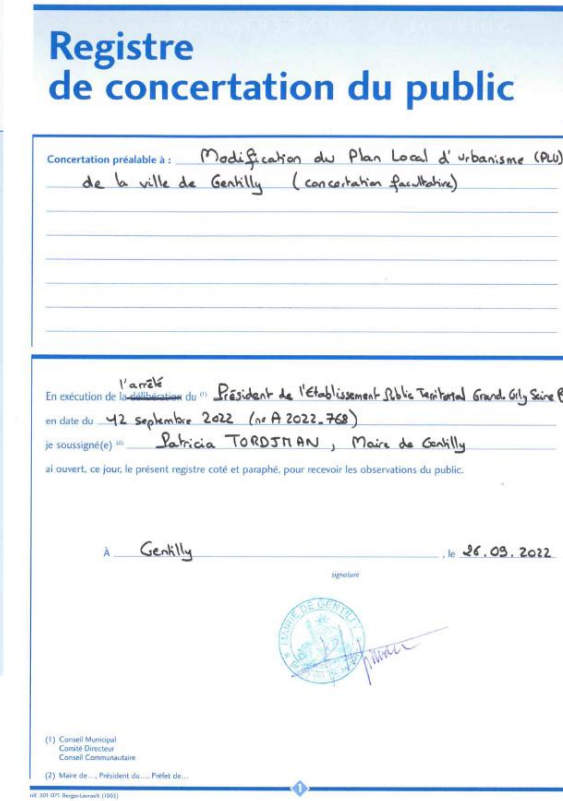 Registre
de concertation du public
Concertation préalable à : Modification du Plan Local d'urbanisme (PLU)
de la ville de Gentilly (concertation facultative)
l'arrêté
En exécution de la délibération du (1) Président de l'Etablissement Public Territorial Grand Orly Seine
en date du 12 septembre 2022 (no A 2022_768)
je soussigné(e) (2) Patricia TORDJMAN, Maire de Gentilly
ai ouvert, ce jour, le présent registre coté et paraphé, pour recevoir les observations du public.
À Gentilly , le 26.09.2022
signature
MAIRIE DE GENTILLY
(1) Conseil Municipal
Comité Directeur
Conseil Communautaire
(2) Maire de..., Président du..., Préfet de...
réf. 301 071 Berger-Levrault (1005)
1